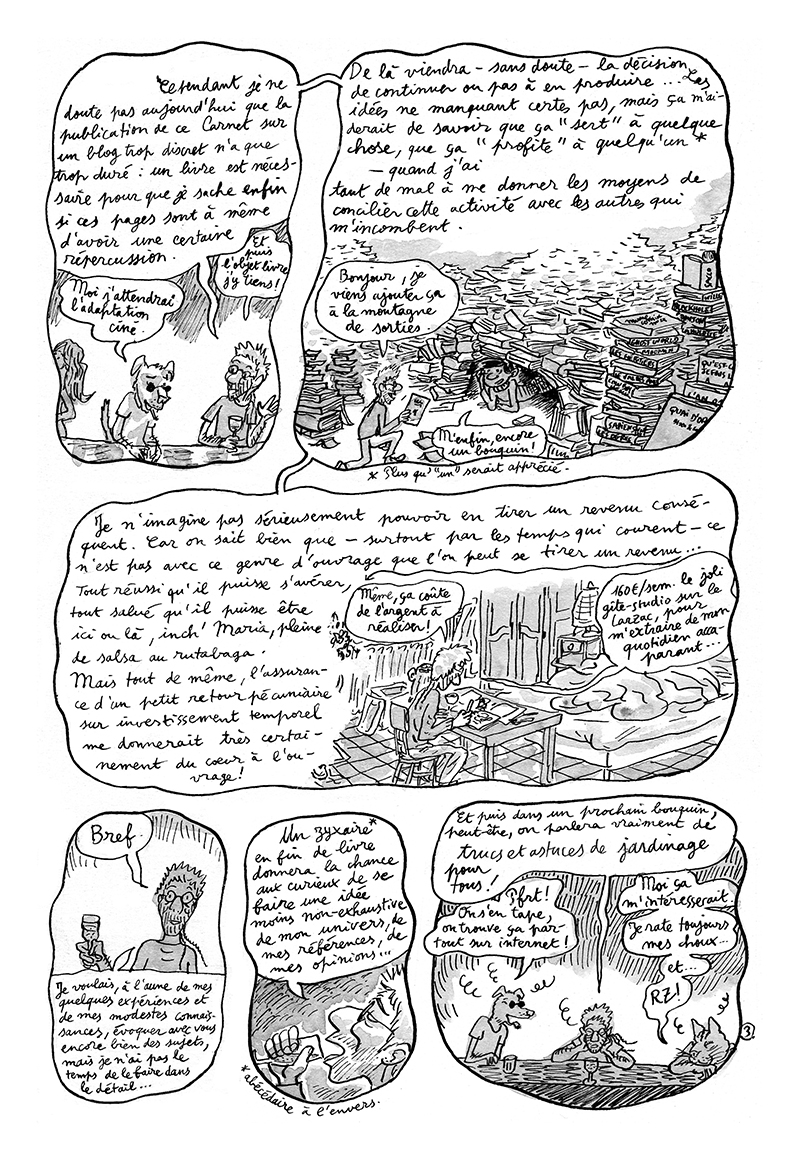 Cependant je ne
doute pas aujourd'hui que la
publication de ce Carnet sur
un blog trop discret n'a que
trop duré : un livre est néces-
saire pour que je sache enfin
si ces pages sont à même
d'avoir une certaine
répercussion.
Et
puis
l'objet livre
j'y tiens !
Moi j'attendrai
l'adaptation
ciné.
De là viendra - sans doute - la décision
de continuer ou pas à en produire... Les
idées ne manquant certes pas, mais ça m'ai-
derait de savoir que ça "sert" à quelque
chose, que ça "profite" à quelqu'un *
- quand j'ai
tant de mal à me donner les moyens de
concilier cette activité avec les autres qui
m'incombent.
Bonjour, je
viens ajouter ça
à la montagne
de sorties.
M'enfin, encore
un bouquin !
SACCO
GHOST WORLD
QU'EST-C
QUAI D'OR
* Plus qu'"un" serait apprécié.
Je n'imagine pas sérieusement pouvoir en tirer un revenu consé-
quent. Car on sait bien que - surtout par les temps qui courent - ce
n'est pas avec ce genre d'ouvrage que l'on peut se tirer un revenu...
Tout réussi qu'il puisse s'avérer,
tout salué qu'il puisse être
ici ou là, inch' Maria, pleine
de salsa au rutabaga.
Mais tout de même, l'assuran-
ce d'un petit retour pécuniaire
sur investissement temporel
me donnerait très certai-
nement du cœur à l'ou-
vrage !
Même, ça coûte
de l'argent à
réaliser !
160€/sem. le joli
gîte-studio sur le
Larzac, pour
m'extraire de mon
quotidien acca-
parant...
Bref.
Je voulais, à l'aune de mes
quelques expériences et
de mes modestes connais-
sances, évoquer avec vous
encore bien des sujets,
mais je n'ai pas le
temps de le faire dans
le détail...
Un zyxaire*
en fin de livre
donnera la chance
aux curieux de se
faire une idée
moins non-exhaustive
de mon univers, de
mes références, de
mes opinions...
* abécédaire à l'envers.
Et puis dans un prochain bouquin,
peut-être, on parlera vraiment de
trucs et astuces de jardinage
pour
tous !
Pfrt !
On s'en tape,
on trouve ça par-
tout sur internet !
Moi ça
m'intéresserait.
Je rate toujours
mes choux...
et...
RZ !
3